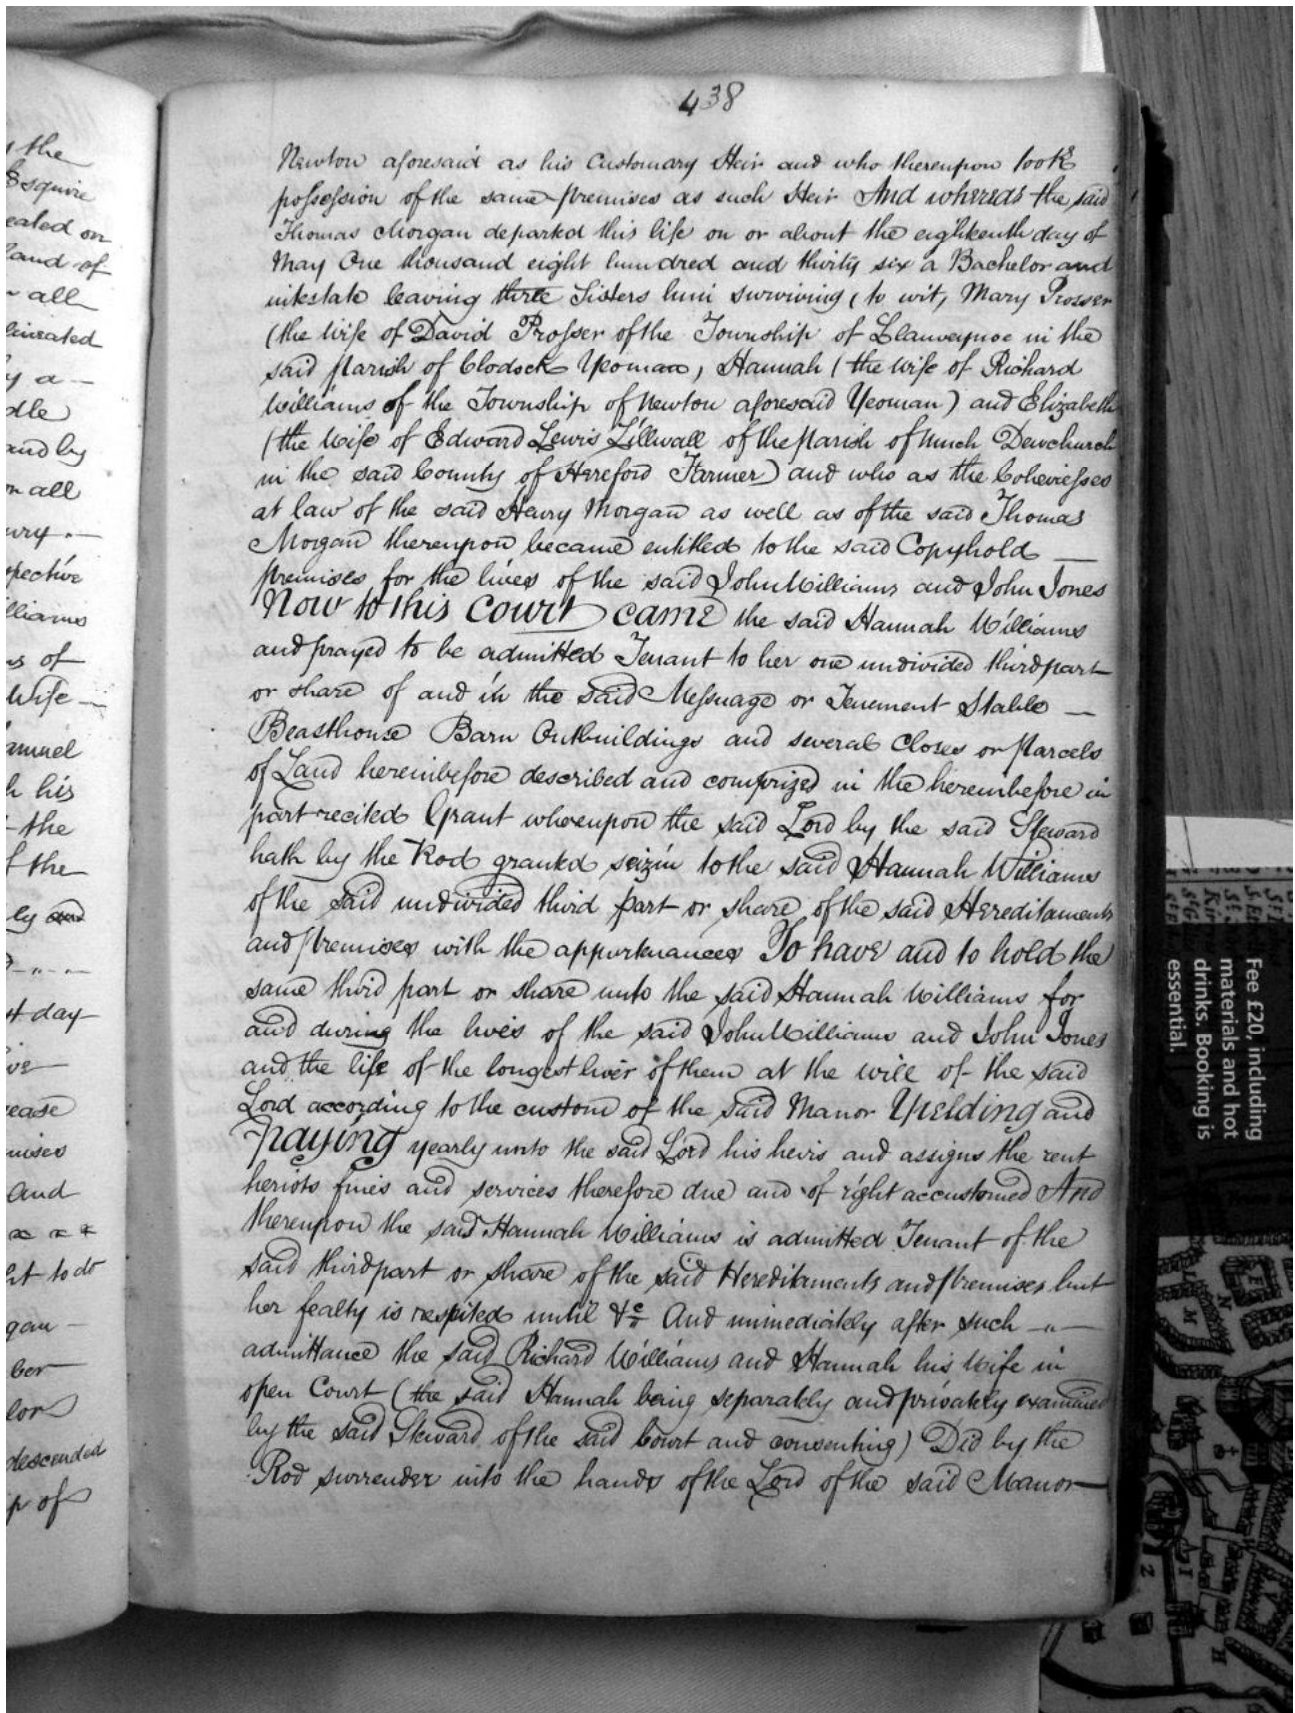 438
Newton aforesaid as his Customary Heir and who thereupon took
possession of the same premises as such Heir And whereas the said
Thomas Morgan departed this life on or about the eighteenth day of
May One thousand eight hundred and thirty six a Bachelor and
intestate leaving three Sisters him surviving (to wit, Mary Prosser
(the Wife of David Prosser of the Township of Llanveynoe in the
said parish of Clodock Yeoman, Hannah (the Wife of Richard
Williams of the Township of Newton aforesaid Yeoman) and Elizabeth
(the Wife of Edward Lewis Lillwall of the parish of Much Dewchurch
in the said County of Hereford Farmer) and who as the Coheiresses
at law of the said Henry Morgan as well as of the said Thomas
Morgan thereupon became entitled to the said Copyhold —
premises for the lives of the said John Williams and John Jones
Now to this Court came the said Hannah Williams
and prayed to be admitted Tenant to her one undivided third part
or share of and in the said Messuage or Tenement Stable —
Beasthouse Barn Outbuildings and several Closes or parcels
of Land hereinbefore described and comprized in the hereinbefore in
part recited Grant whereupon the said Lord by the said Steward
hath by the Rod granted seizin to the said Hannah Williams
of the said undivided third part or share of the said Hereditaments
and premises with the appurtenances To have and to hold the
same third part or share unto the said Hannah Williams for
and during the lives of the said John Williams and John Jones
and the life of the longest liver of them at the will of the said
Lord according to the custom of the said Manor Yielding and
Paying yearly unto the said Lord his heirs and assigns the rent
heriots fines and services therefore due and of right accustomed And
thereupon the said Hannah Williams is admitted Tenant of the
said third part or share of the said Hereditaments and premises but
her fealty is respited until &c And immediately after such —"—
admittance the said Richard Williams and Hannah his Wife in
open Court (the said Hannah being separately and privately examined
by the said Steward of the said Court and consenting) Did by the
Rod surrender into the hands of the Lord of the said Manor —
the
Esquire
on
land of
all
a —
and by
on all
of
Wife —
his
the
the
day
and
to do
descended
of
Fee £20, including
materials and hot
drinks. Booking is
essential.